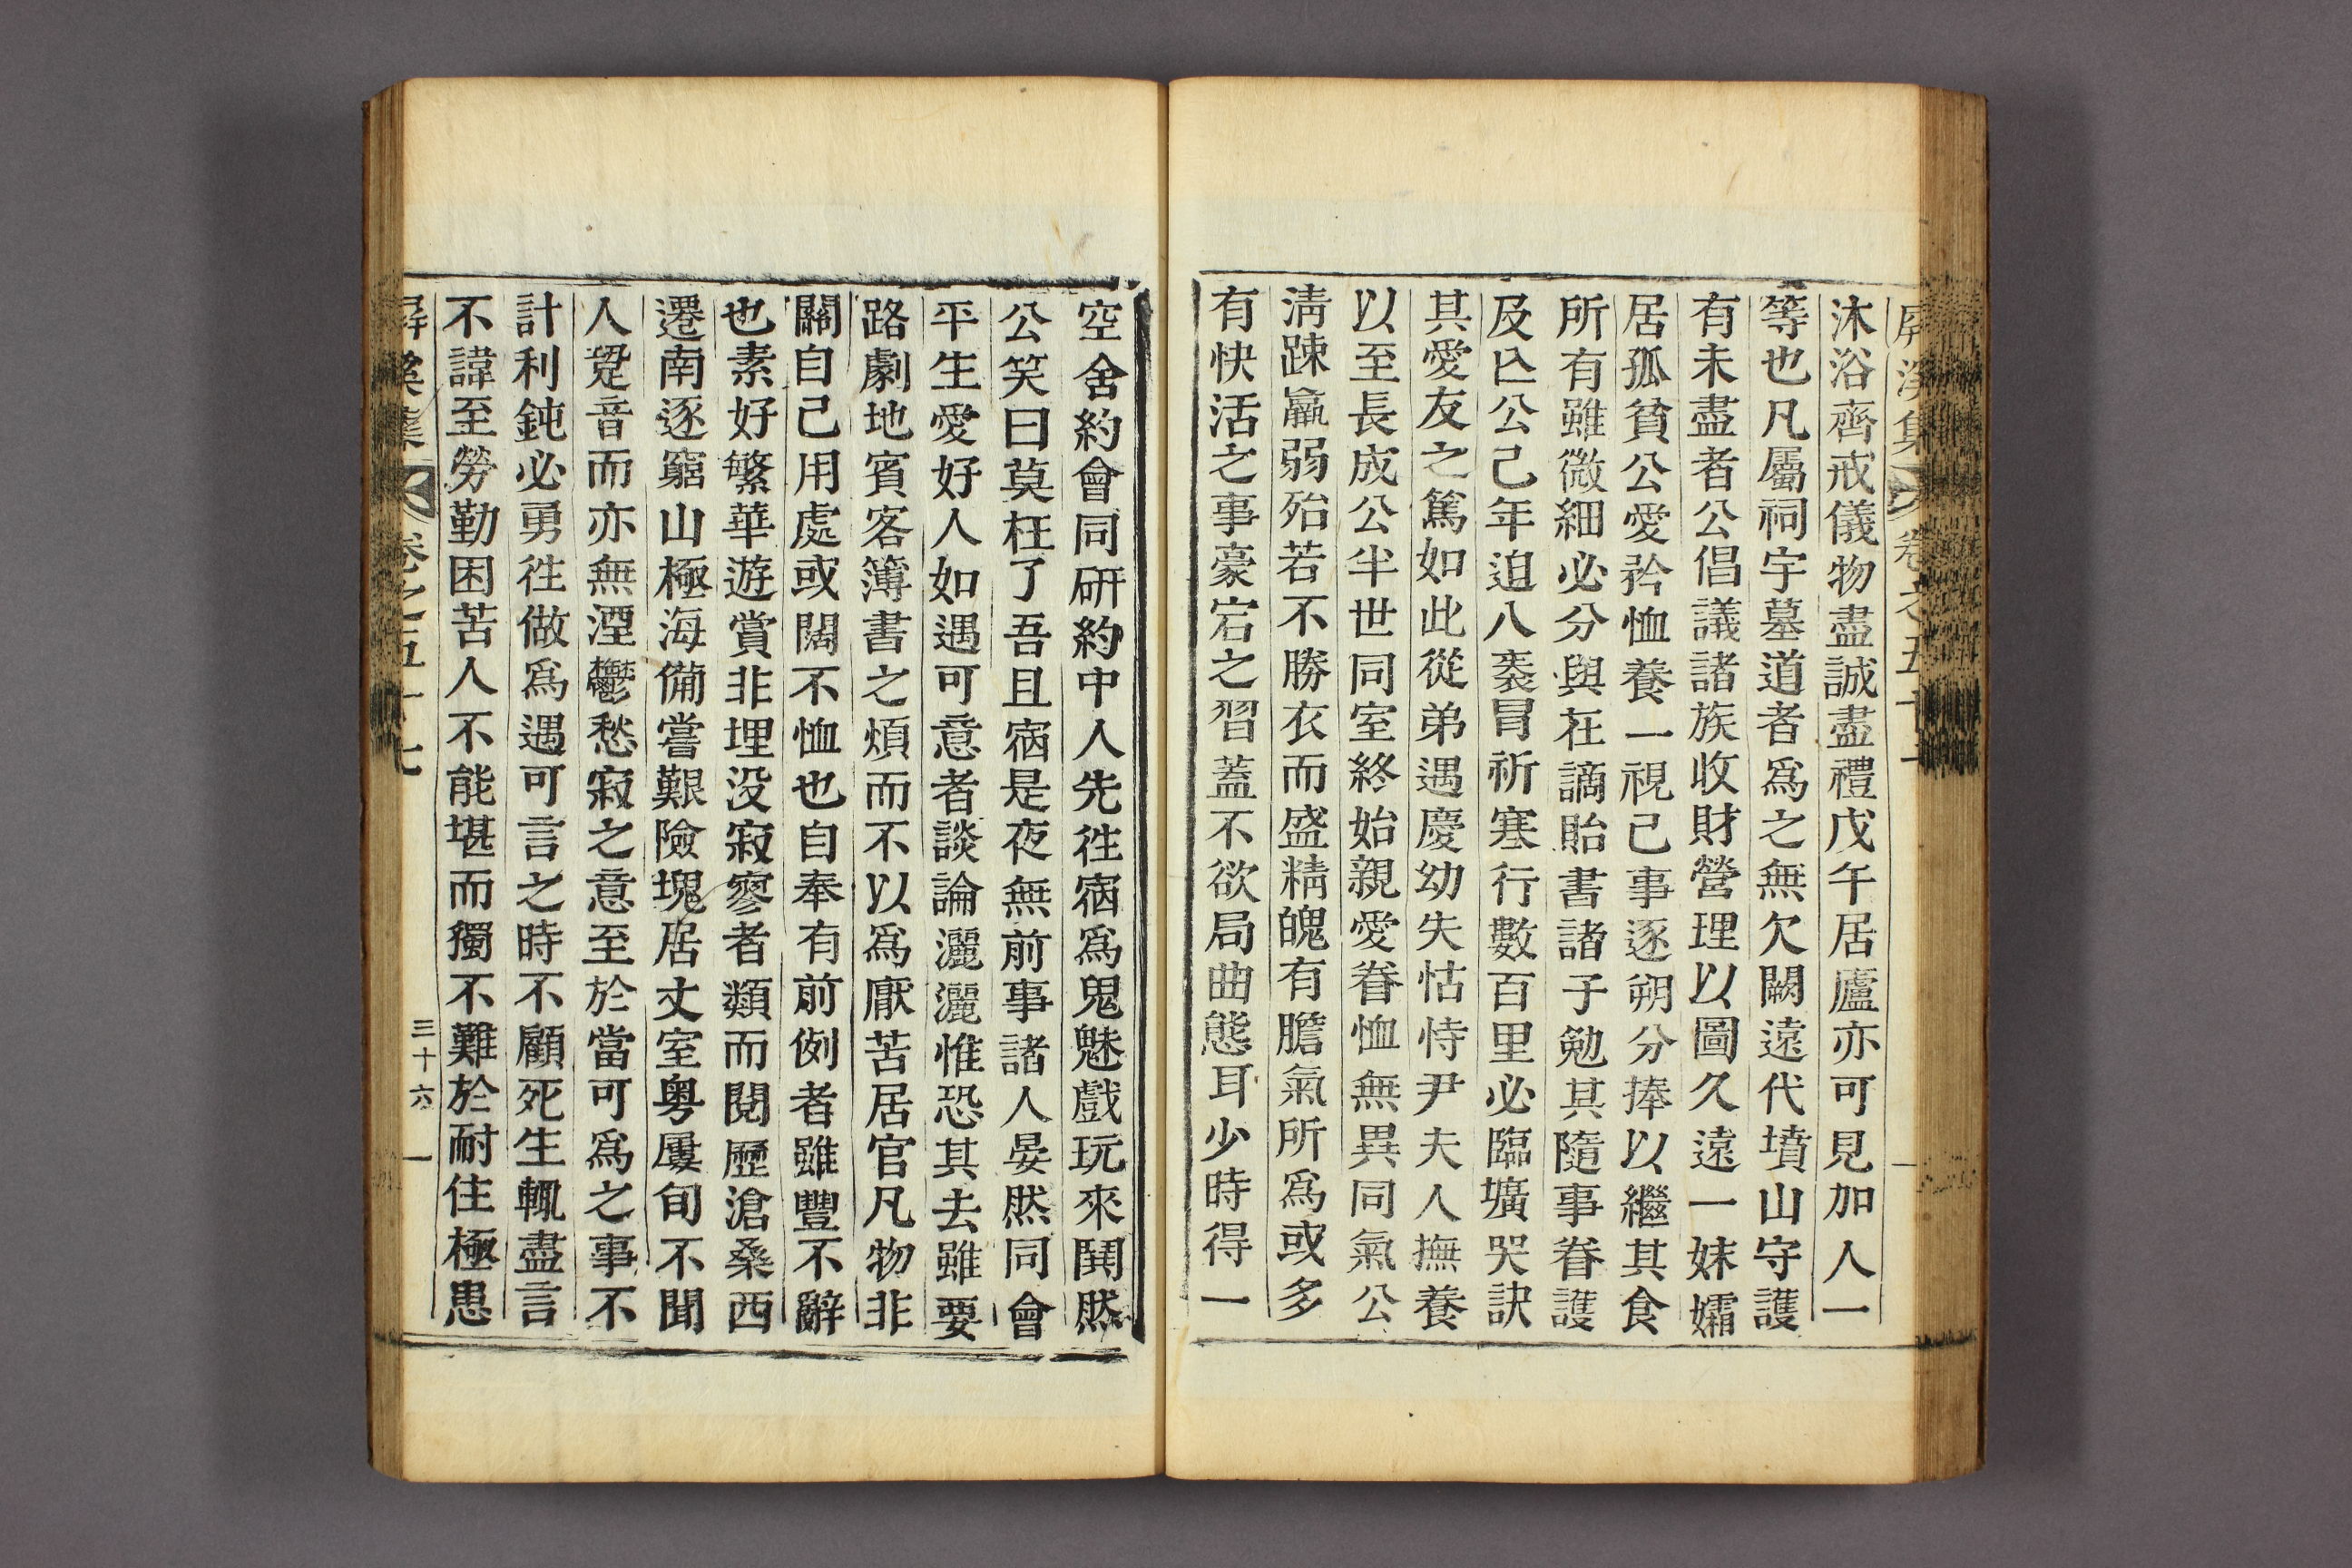 屛溪集 卷之五十七
沐浴齊戒儀物盡誠盡禮戊午居廬亦可見加人一
等也凡屬祠宇墓道者爲之無欠闕遠代墳山守護
有未盡者公倡議諸族收財營理以圖久遠一妹孀
居孤貧公愛矜恤養一視己事逐朔分捧以繼其食
所有雖微細必分與在謫貽書諸子勉其隨事眷護
及亾公己年迫八袠冒祈寒行數百里必臨壙哭訣
其愛友之篤如此從弟遇慶幼失怙恃尹夫人撫養
以至長成公半世同室終始親愛眷恤無異同氣公
淸踈羸弱殆若不勝衣而盛精魄有膽氣所爲或多
有快活之事豪宕之習蓋不欲局曲態耳少時得一
空舍約會同硏約中人先徃宿爲鬼魅戲玩來鬨然
公笑曰莫枉了吾且宿是夜無前事諸人晏然同會
平生愛好人如遇可意者談論灑灑惟恐其去雖要
路劇地賓客簿書之煩而不以爲厭苦居官凡物非
關自己用處或闊不恤也自奉有前例者雖豐不辭
也素好繁華遊賞非埋没寂寥者類而閱歷滄桑西
遷南逐窮山極海備嘗艱險塊居丈室粤屢旬不聞
人跫音而亦無湮鬱愁寂之意至於當可爲之事不
計利鈍必勇徃做爲遇可言之時不顧死生輒盡言
不諱至勞勤困苦人不能堪而獨不難於耐住極患
屛溪集 卷之五十七 三十六